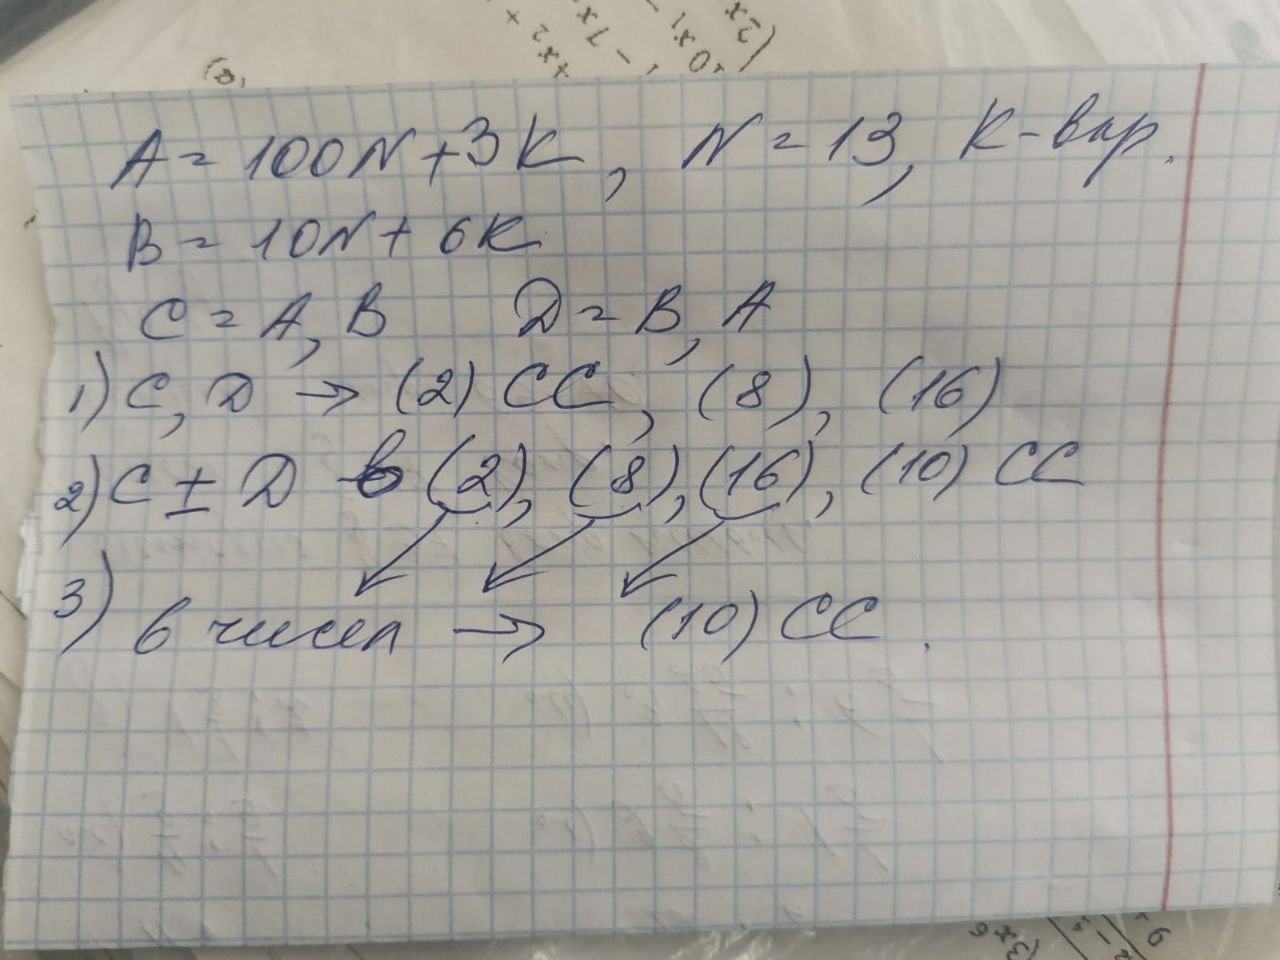 A = 100N + 3K, N = 13, K - вар.
B = 10N + 6K
C = A, B D = B, A
1) C, D → (2) CC, (8), (16)
2) C ± D в (2), (8), (16), (10) CC
3) 6 чисел → (10) CC.